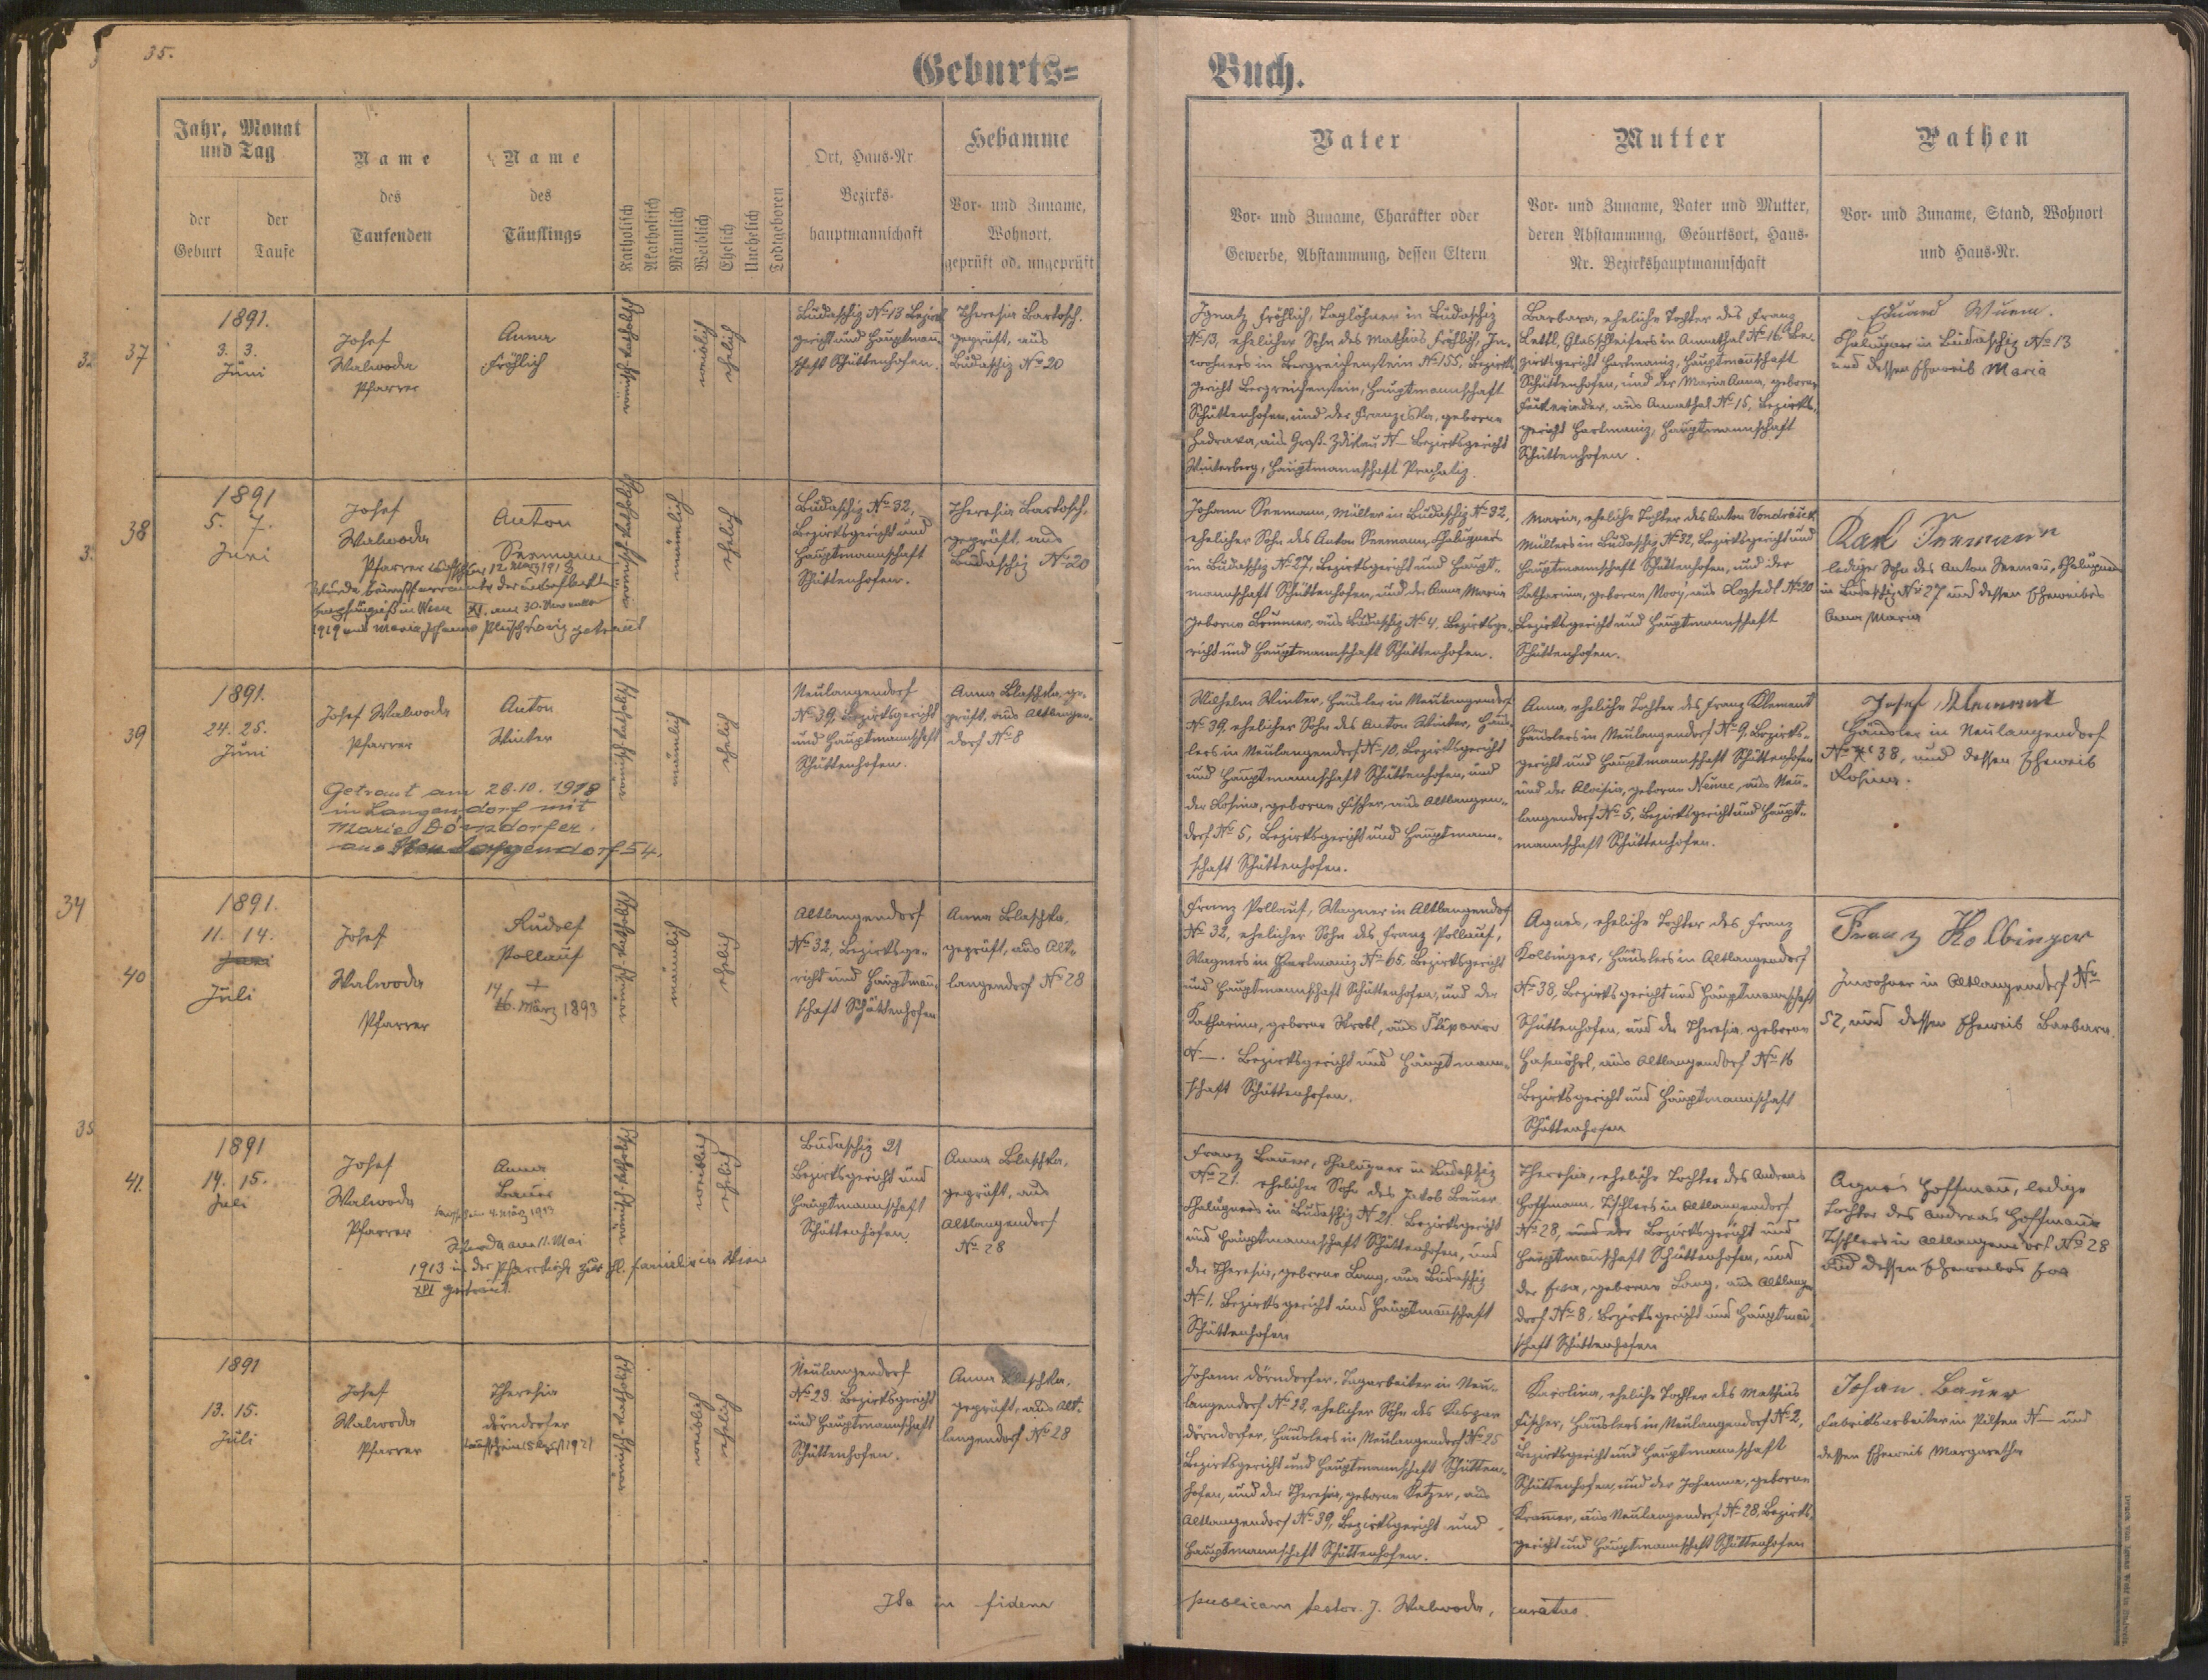 35.
Geburts=
Buch.
Jahr, Monat
und Tag
der
Geburt
der
Taufe
Name
des
Taufenden
Name
des
Täuflings
Katholisch
Akatholisch
Männlich
Weiblich
Ehelich
Unehelich
Todtgeboren
Ort, Haus-Nr
Bezirks-
hauptmannschaft
Hebamme
Vor- und Zuname,
Wohnort,
geprüft od. ungeprüft
Vater
Vor- und Zuname, Charakter oder
Gewerbe, Abstammung, dessen Eltern
Mutter
Vor- und Zuname, Vater und Mutter,
deren Abstammung, Geburtsort, Haus-
Nr. Bezirkshauptmannschaft
Pathen
Vor- und Zuname, Stand, Wohnort
und Haus-Nr.
37
1891.
3. 3.
Juni
Josef
Walwoda
Pfarrer
Anna
Fröhlich
weiblich
ehelich
Budaschiz No 13 Bezirks
gericht und Hauptman-
schaft Schüttenhofen.
Theresia Bartosch.
geprüft, aus
Budaschiz No 20
Ignatz Fröhlich, Taglöhner in Budaschiz
No 13, ehelicher Sohn des Mathias Fröhlich, In-
wohners in Bergreichenstein No 155, Bezirks
gericht Bergreichenstein, Hauptmannschaft
Schüttenhofen, und der Franziska, geborne
Hedrava, aus Groß-Zdikau No — Bezirksgericht
Winterberg, Hauptmannschaft Prachatiz.
Barbara, eheliche Tochter des Franz
Glasschleifers in Annathal No 16, Be-
zirksgericht Hartmaniz, Hauptmannschaft
Schüttenhofen, und der Maria Anna, geborne
aus Annathal No 15, Bezirks-
gericht Hartmaniz, Hauptmannschaft
Schüttenhofen.
Eduard Wurm.
Chalupner in Budaschiz No 13
und dessen Eheweib Maria
38
1891
5. 7.
Juni
Josef
Walwoda
Pfarrer
Anton
Seemann
12 März 1913
Wurde beim Pfarramte der unbefleckten
Empfängniß in Wien XV. am 30. November
1919 mit Maria Johanna getraut
männlich
ehelich
Budaschiz No 32,
Bezirksgericht und
Hauptmannschaft
Schüttenhofen.
Theresia Bartosch.
geprüft, aus
Budaschiz No 20
Johann Seemann, Müller in Budaschiz No 32,
ehelicher Sohn des Anton Seemann, Chalupners
in Budaschiz No 27, Bezirksgericht und Haupt-
mannschaft Schüttenhofen, und der Anna Maria
geborne Brunner, aus Budaschiz No 4, Bezirksge-
richt und Hauptmannschaft Schüttenhofen.
Maria, eheliche Tochter des Anton Vondrášek
Müllers in Budaschiz No 32, Bezirksgericht und
Hauptmannschaft Schüttenhofen, und der
Katharina, geborne aus No 20
Bezirksgericht und Hauptmannschaft
Schüttenhofen.
Karl Seemann
lediger Sohn des Anton Seemañ, Chalupner
in Budaschiz No 27 und dessen Eheweibes
Anna Maria
39
1891.
24. 25.
Juni
Josef Walwoda
Pfarrer
Anton
Winter
Getraut am 28.10.1918
in Langendorf mit
Marie Dörndorfer.
aus Langendorf 54.
männlich
ehelich
Neulangendorf
No 39, Bezirksgericht
und Hauptmannschaft
Schüttenhofen.
Anna Blaschka, ge-
prüft, aus Altlangen-
dorf No 8
Wilhelm Winter, Häusler in Neulangendorf
No 39, ehelicher Sohn des Anton Winter, Häus-
lers in Neulangendorf No 10, Bezirksgericht
und Hauptmannschaft Schüttenhofen, und
der Rosina, geborne Fischer, aus Altlangen-
dorf No 5, Bezirksgericht und Hauptmann-
schaft Schüttenhofen.
Anna, eheliche Tochter des Franz Klement
Häuslers in Neulangendorf No 9, Bezirks-
gericht und Hauptmannschaft Schüttenhofen
und der Aloisia, geborne aus Neu-
langendorf No 5, Bezirksgericht und Haupt-
mannschaft Schüttenhofen.
Josef Klement
Häusler in Neulangendorf
No 38, und dessen Eheweib
Rosina.
34
40
1891.
11. 14.
Juni
Juli
Josef
Walwoda
Pfarrer
Rudolf
Pollauf
14 +
16. März 1893
männlich
ehelich
Altlangendorf
No 32, Bezirksge-
richt und Hauptman-
schaft Schüttenhofen
Anna Blaschka,
geprüft, aus Alt-
langendorf No 28
Franz Pollauf, Wagner in Altlangendorf
No 32, ehelicher Sohn des Franz Pollauf,
Wagners in Hartmaniz No 65, Bezirksgericht
und Hauptmannschaft Schüttenhofen, und der
Katharina, geborne Strobl, aus
No —. Bezirksgericht und Hauptmann-
schaft Schüttenhofen.
Agnes, eheliche Tochter des Franz
Kolbinger, Häuslers in Altlangendorf
No 38, Bezirksgericht und Hauptmannschaft
Schüttenhofen, und der Theresia, geborne
Hasenöhrl, aus Altlangendorf No 16
Bezirksgericht und Hauptmannschaft
Schüttenhofen
Franz Kolbinger
Inwohner in Altlangendorf No
52, und dessen Eheweib Barbara.
41.
1891
14. 15.
Juli
Josef
Walwoda
Pfarrer
Anna
Bauer
Taufschein 4. März 1913
Wurde am 11. Mai
1913 in der Pfarrkirche zur hl. Familie in Wien
XVI getraut.
weiblich
ehelich
Budaschiz 21
Bezirksgericht und
Hauptmannschaft
Schüttenhofen.
Anna Blaschka,
geprüft, aus
Altlangendorf
No 28
Franz Bauer, Chalupner in Budaschiz
No 21. ehelicher Sohn des Jakob Bauer
Chalupners in Budaschiz No 21. Bezirksgericht
und Hauptmannschaft Schüttenhofen, und
der Theresia, geborne Lang, aus Budaschiz
No 1. Bezirksgericht und Hauptmannschaft
Schüttenhofen
Theresia, eheliche Tochter des Andreas
Hoffmann, Tischlers in Altlangendorf
No 28, und der Bezirksgericht und
Hauptmannschaft Schüttenhofen, und
der Eva, geborne Lang, aus Altlangen
dorf No 8, Bezirksgericht und Hauptmañ-
schaft Schüttenhofen
Agnes Hoffmañ, ledige
Tochter des Andreas Hoffmann
Tischlers in Altlangendorf No 28
und dessen Eheweibes Eva
1891
13. 15.
Juli
Josef
Walwoda
Pfarrer
Theresia
Dörndorfer
weiblich
ehelich
Neulangendorf
No 29. Bezirksgericht
und Hauptmannschaft
Schüttenhofen.
Anna Blaschka,
geprüft, aus Alt-
langendorf No 28
Johann Dörndorfer, Tagarbeiter in Neu-
langendorf No 22, ehelicher Sohn des Kaspar
Dörndorfer, Häuslers in Neulangendorf No 25
Bezirksgericht und Hauptmannschaft Schütten-
hofen, und der Theresia, geborne Ketzer, aus
Altlangendorf No 39, Bezirksgericht und
Hauptmannschaft Schüttenhofen.
Karolina, eheliche Tochter des Mathias
Fischer, Häuslers in Neulangendorf No 2,
Bezirksgericht und Hauptmannschaft
Schüttenhofen, und der Johanna, geborne
Krammer, aus Neulangendorf No 28, Bezirks-
gericht und Hauptmannschaft Schüttenhofen
Johan. Bauer
Fabriksarbeiter in Pilsen No — und
dessen Eheweib Margaretha
Ita in fidem
publicam testor. J. Walwoda, curatus.